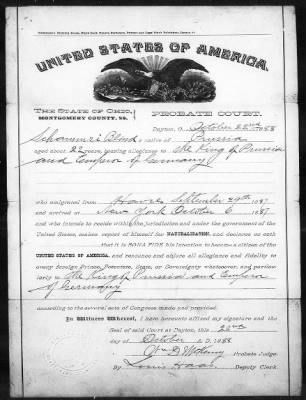 UNITED STATES OF AMERICA.
THE STATE OF OHIO,
MONTGOMERY COUNTY, SS.
PROBATE COURT.
Dayton, O., October 22nd 1888
a native of Prussia
aged about 22 years, bearing allegiance to the King of Prussia
and Emperor of Germany
who emigrated from Havre September 29th 1887
and arrived at New York October 6 1887
and who intends to reside within the jurisdiction and under the government of the
United States, makes report of himself for NATURALIZATION, and declares on oath
that it is BONA FIDE his intention to become a citizen of the
UNITED STATES OF AMERICA, and renounce and abjure all allegiance and fidelity to
every foreign Prince, Potentate, State, or Sovereignty whatsoever, and particu-
larly to the King of Prussia and Emperor
of Germany
according to the several acts of Congress made and provided.
In Witness Whereof, I have hereunto affixed my signature and the
Seal of said Court at Dayton, this 22nd
day of October A.D. 1888
Wm D McKemy Probate Judge.
By Louis Haas, Deputy Clerk.